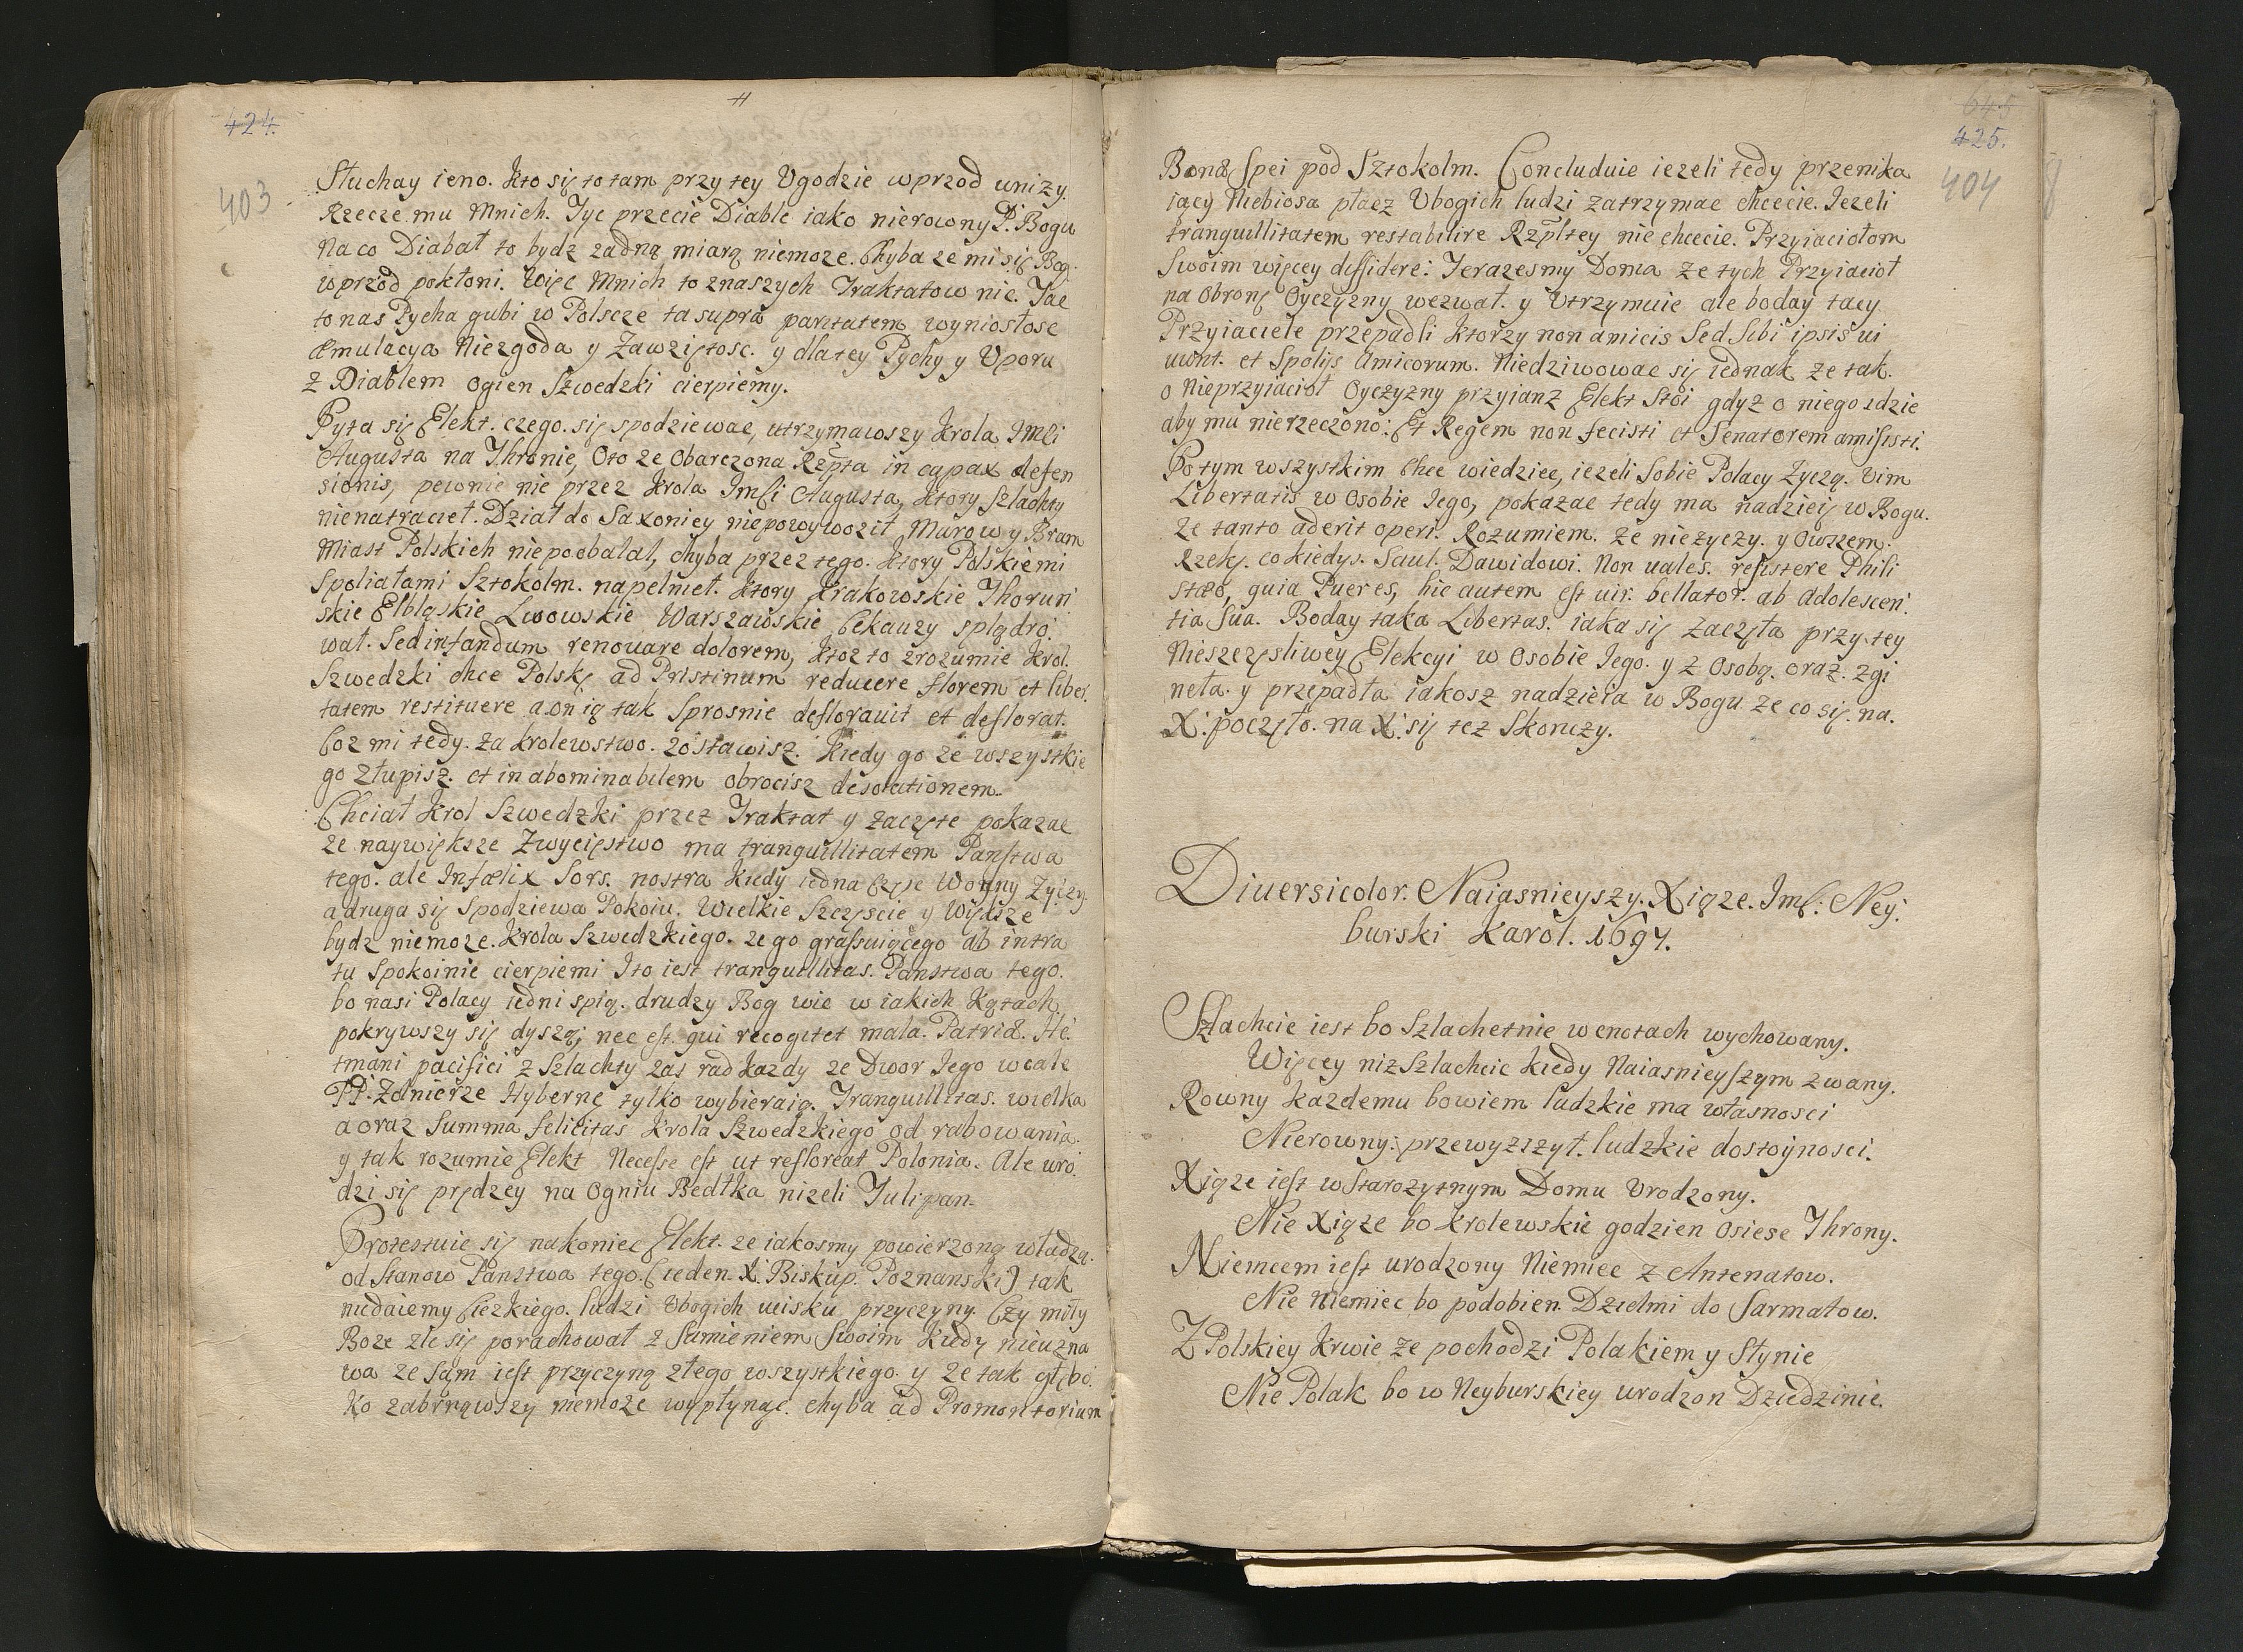 424.
403
Słuchay ieno. Kto się to tam przy tey Ugodzie wprzod unizy.
Rzecze mu Mnich. Tyc przecie Diable iako nierowny P. Bogu
Na co Diabał to bydz zadną miarą niemoze. Chyba ze mi się Bog.
wprzod pokłoni. Więc Mnich to znaszych Traktatow nic. Tac
to nas Pycha gubi w Polscze ta supra paritatem wyniosłosc
æmulacya Niezgoda y Zawziętosc. y dla tey Pychy y Uporu
z Diablem ogien Szwedzki cierpiemy.
Pyta się Elekt. czego. się spodziewac, utrzymawszy Krola Imści
Augusta na Thronie, Oto ze Obarczona Rzpta in capax defen
sionis, pewnie nie przez Krola Imści Augusta, Ktory Szlachty
nienatracieł. Dział do Saxoniey niepowywoził Murow y Bram
Miast Polskich niepoobalał, chyba przez tego. Ktory Polskiemi
Spoliatami Sztokolm. napełnieł. Ktory Krakowskie Thoruń
skie Elbląskie Lwowskie Warszawskie Ckauzy splądro.
wał. Sed infandum renouare dolorem, Ktoz to zrozumie Krol.
Szwedzki chce Polskę ad Pristinum reducere florem et liber.
tatem restituere a on ią tak Sprosnie deflorauit et deflorat.
Coz mi tedy. za krolewstwo. zostawisz. Kiedy go ze wszystkie
go złupisz. et in abominabilem obrocisz desolationem.
Chciał Krol Szwedzki przez Traktat y zaczęte pokazac
ze naywiększe Zwycięstwo ma tranquillitatem Panstwa
tego. ale Infælix Sors. nostra Kiedy iedna Częsc Woyny Zyczy
a druga się Spodziewa Pokoiu. Wielkie Szczęscie y Większe
bydz niemoze. Krola Szwedzkiego. ze go grassuiącego ab intra
tu Spokoinie cierpiemi To iest tranquillitas. Panstwa tego.
bo nasi Polacy iedni spią. drudzy Bog wie w iakich Kątach
pokrywszy się dyszą; nec est. qui recogitet mala. Patriæ. He.
tmani pacifici z Szlachty zas rad kazdy ze Dwor Iego wcale
PP. Zołnierze Hybernę tylko wybieraią. Tranquillitas. wielka
a oraz Summa felicitas Krola Szwedzkiego od rabowania.
y tak rozumie Elekt Necesse est ut refloreat Polonia. Ale uro.
dzi się prędzey na Ogniu Bedłka nizeli Tulipan.
Protestuie się nakoniec Elekt. ze iakosmy powierzoną władzą.
od Stanow Panstwa tego. (ieden X. Biskup. Poznanski) tak
niedaiemy Ciezkiego. ludzi Ubogich ucisku przyczyny. Czy miły
Boze zle się porachował z Sumieniem Swoim Kiedy nieuzna
wa ze Sąm iest przyczyną złego wszystkiego. y ze tak głębo.
ko zabrnąwszy niemoze wypłynąc. chyba ad Promontorium
645
425.
404
Bonæ Spei pod Sztokolm. Concluduie iezeli tedy przenika
iący Niebiosa płacz Ubogich ludzi zatrzymac chcecie. Iezeli
tranquillitatem restabilire Rzpltey nie chcecie. Przyiaciołom
Swoim więcey diffidere: Terazesmy Doma ze tych Przyiacioł
na Obronę Oyczyzny wezwał. y Utrzymuie ale boday tacy
Przyiaciele przepadli Ktorzy non amicis Sed Sibi ipsis ui
uunt. et Spolijs Amicorum. Niedziwowac się iednak ze tak.
o Nieprzyiacioł Oyczyzny przyiazn Elekt Stoi gdyz o niego idzie
aby mu nierzeczono: Et Regem non fecisti et Senatorem amisisti.
Po tym wszystkim Chce wiedziec, iezeli Sobie Polacy Zyczą. Vim
Libertatis w Osobie Iego, pokazac tedy ma nadzieię w Bogu.
ze tanto aderit operi. Rozumiem. ze niezyczy. y Owszem.
Rzekę. co kiedys. Saul. Dawidowi. Non uales. resistere Phili
stæo, quia Puer es, hic autem est uir. bellator. ab Adolescen.
tia Sua. Boday taka Libertas. iaka się Zaczęła przy tey
Nieszczęsliwey Elekcyi w Osobie Iego. y z Osobą. oraz. zgi
neła. y przepadła iakosz nadzieia w Bogu ze co się. na.
X. poczęło. na X. się tez Skonczy.
Diuersicolor. Naiasnieyszy. Xiąze. Imś: Ney:
burski Karol. 1697.
Szlachcic iest bo Szlachetnie w cnotach wychowany.
Więcey niz Szlachcic kiedy Naiasnieyszym zwany.
Rowny kazdemu bowiem ludzkie ma własnosci
Nierowny: przewyzszył. ludzkie dostoynosci.
Xiąze iest w Starozytnym Domu Urodzony.
Nie Xiąze bo Krolewskie godzien Osiesc Throny.
Niemcem iest urodzony Niemiec z Antenatow.
Nie Niemiec bo podobien Dzielmi do Sarmatow.
Z Polskiey Krwie ze pochodzi Polakiem y Słynie
Nie Polak bo w Neyburskiey urodzon Dziedzinie.